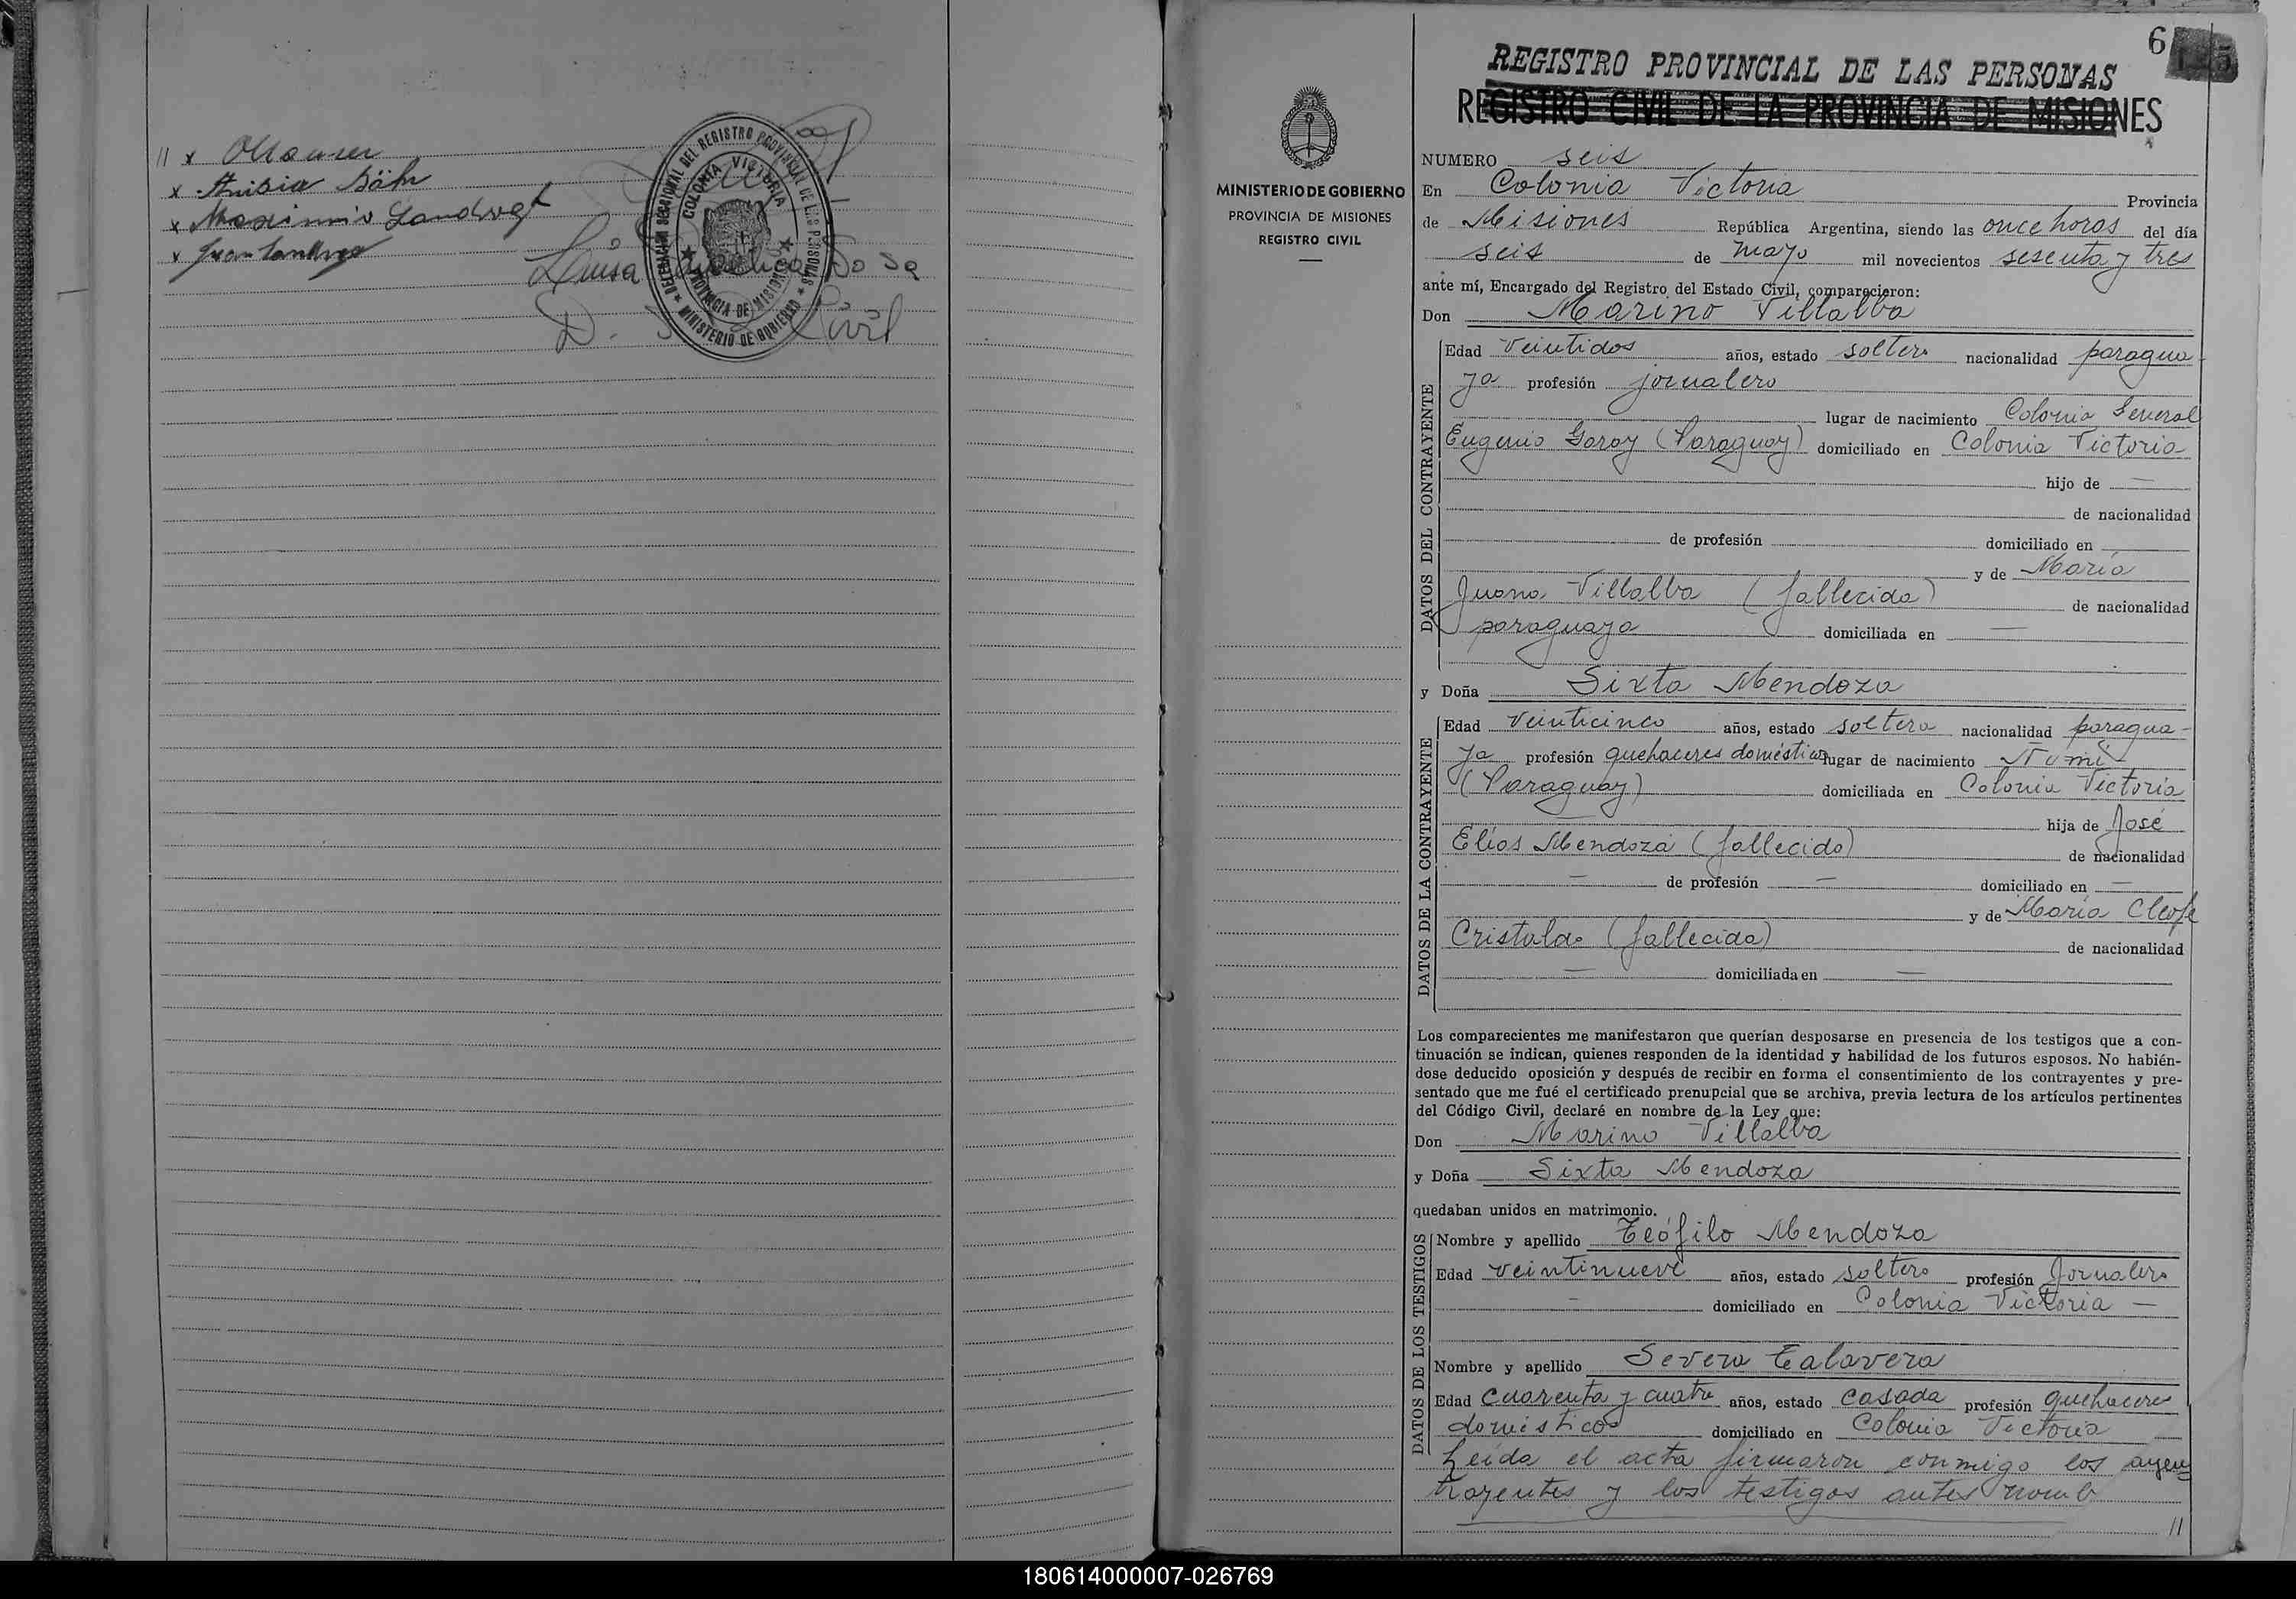 // x
x Anisia Bähr
x Maximino Landvogt
x Juan
Luisa
D. Civil
DELEGACION SECCIONAL DEL REGISTRO PROVINCIAL DE LAS PERSONAS
MINISTERIO DE GOBIERNO
COLONIA VICTORIA
PROVINCIA DE MISIONES
6
REGISTRO PROVINCIAL DE LAS PERSONAS
REGISTRO CIVIL DE LA PROVINCIA DE MISIONES
MINISTERIO DE GOBIERNO
PROVINCIA DE MISIONES
REGISTRO CIVIL
NUMERO seis
En Colonia Victoria Provincia
de Misiones República Argentina, siendo las once horas del día
seis de mayo mil novecientos sesenta y tres
ante mí, Encargado del Registro del Estado Civil, comparecieron:
Don Marino Villalba
DATOS DEL CONTRAYENTE
Edad veintidos años, estado soltero nacionalidad paragua-
ya profesión jornalero
lugar de nacimiento Colonia General
Eugenio Garay (Paraguay) domiciliado en Colonia Victoria
hijo de —
de nacionalidad
de profesión domiciliado en
y de María
Juana Villalba (fallecida) de nacionalidad
paraguaya domiciliada en —
y Doña Sixta Mendoza
DATOS DE LA CONTRAYENTE
Edad veinticinco años, estado soltera nacionalidad paragua-
ya profesión quehaceres domésticos lugar de nacimiento Ñumí
(Paraguay) domiciliada en Colonia Victoria
hija de José
Elías Mendoza (fallecido) de nacionalidad
— de profesión — domiciliado en —
y de María Cleofe
Cristaldo (fallecida) de nacionalidad
— domiciliada en —
Los comparecientes me manifestaron que querían desposarse en presencia de los testigos que a con-
tinuación se indican, quienes responden de la identidad y habilidad de los futuros esposos. No habién-
dose deducido oposición y después de recibir en forma el consentimiento de los contrayentes y pre-
sentado que me fué el certificado prenupcial que se archiva, previa lectura de los artículos pertinentes
del Código Civil, declaré en nombre de la Ley que:
Don Marino Villalba
y Doña Sixta Mendoza
quedaban unidos en matrimonio.
DATOS DE LOS TESTIGOS
Nombre y apellido Teófilo Mendoza
Edad veintinueve años, estado soltero profesión Jornalero
— domiciliado en Colonia Victoria —
Nombre y apellido Severa Talavera
Edad cuarenta y cuatro años, estado casada profesión quehaceres
domésticos domiciliado en Colonia Victoria —
Leída el acta firmaron conmigo los
trayentes y los testigos antes nomb
//
180614000007-026769